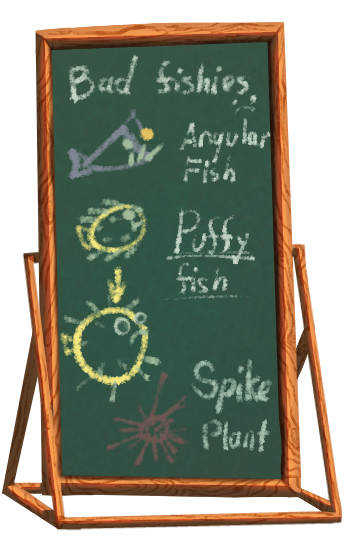 Bad fishies
Angular
Fish
Puffy
fish
Spike
Plant